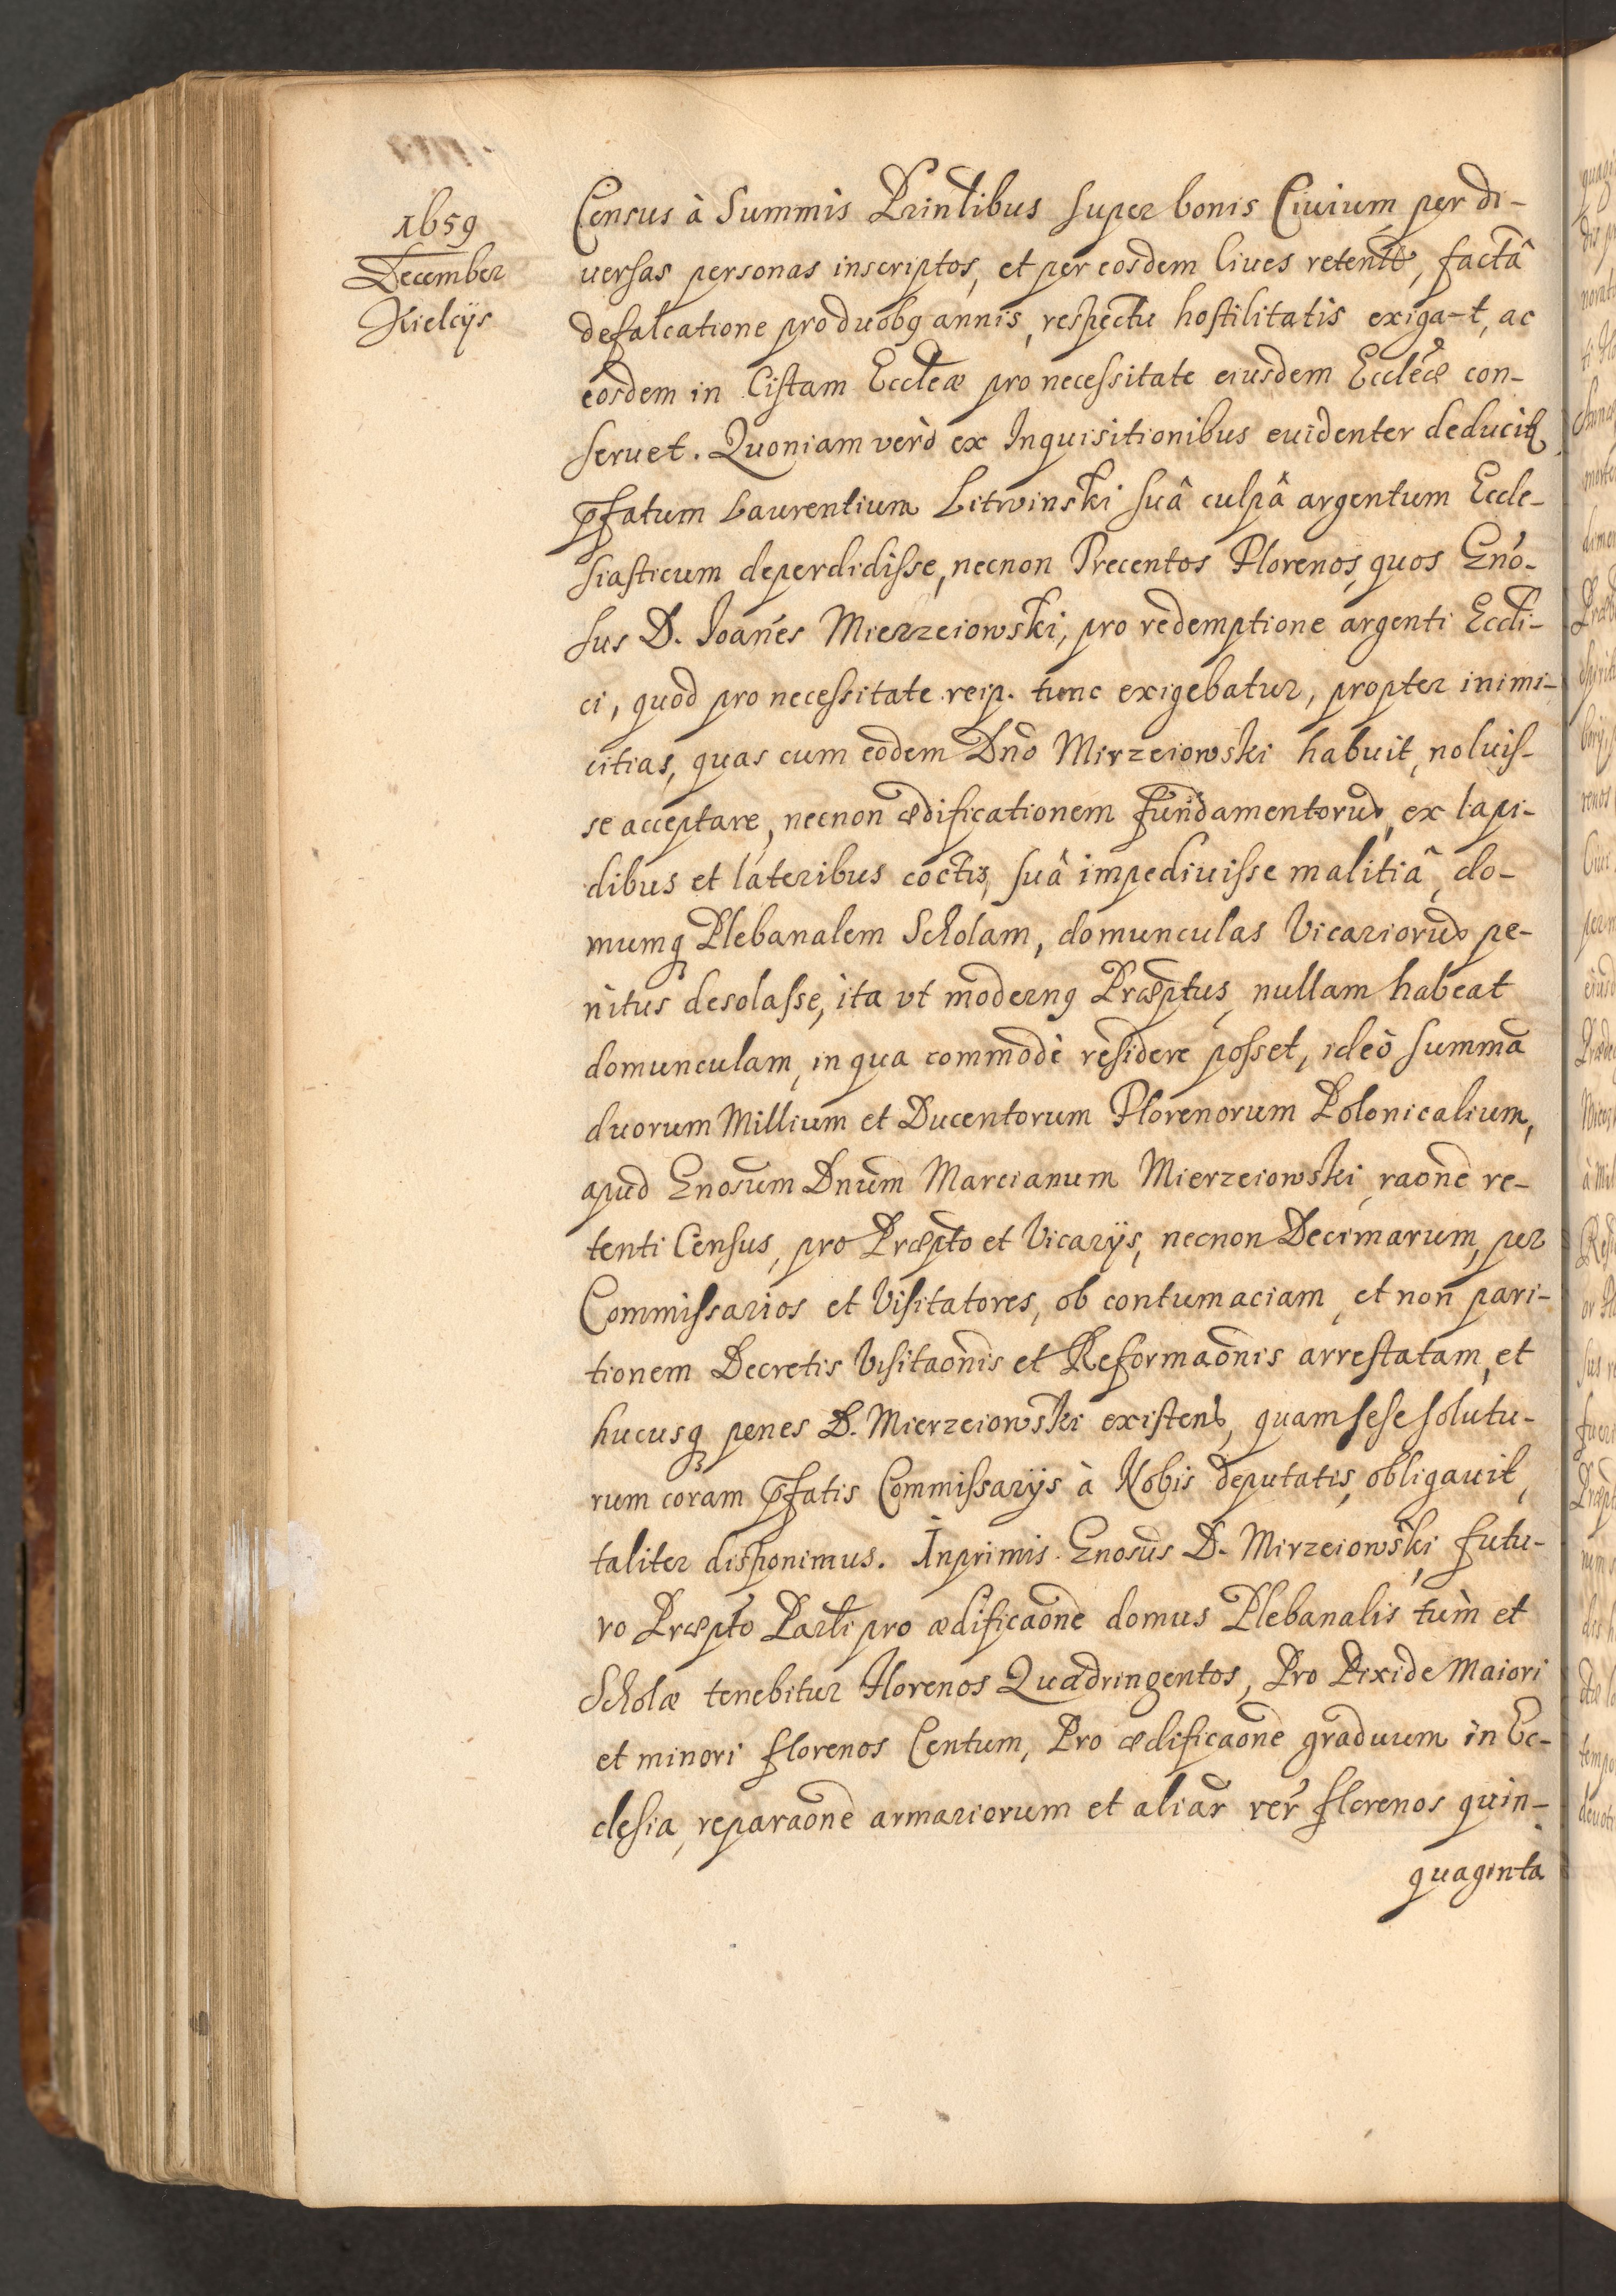 1659
December
Kielcÿs
Census à Summis Prin͠libus super bonis Ciuium, per di-
uersas personas inscriptos, et per eosdem Ciues reten͠te, factâ
defalcatione pro duobq annis, respectu hostilitatis exiga-t, ac
eosdem in Cistam Eccl͠eæ pro necessitate eiusdem Eccl͠eæ con-
seruet. Quoniam verò ex Inquisitionibus euidenter deducit͠
p͠fatum Laurentium Litwinski suâ culpâ argentum Eccle-
siasticum deperdidisse, necnon Trecentos Florenos, quos G͠no-
sus D. Joan͠es Mierzeiowski, pro redemptione argenti Eccl͠i-
ci, quod pro necessitate reip. tunc exigebatur, propter inimi-
citias, quas cum eodem Dn͠o Mirzeiowski habuit, noluis-
se acceptare, necnon ædificationem fundamentorum, ex lapi-
dibus et lateribus coctis, suâ impediuisse malitiâ, do-
mumq Plebanalem Scholam, domunculas Vicariorum pe-
nitus desolasse, ita vt modernq Præp͠tus, nullam habeat
domunculam, in qua commodè residere posset, ideò summa͠
duorum Millium et Ducentorum Florenorum Polonicalium,
apud G͠nosum Dn͠um Marcianum Mierzeiowski, rao͠ne re-
tenti Census, pro Præp͠to et Vicarÿs, necnon Decimarum, per
Commissarios et Visitatores, ob contumaciam, et non pari-
tionem Decretis Visitao͠nis et Reformao͠nis arrestatam, et
hucusq penes D. Mierzeiowski existen͠, quam sese solutu-
rum coram p͠fatis Commissarÿs à Nobis deputatis, obligauit,
taliter disponimus. Inprimis G͠nosus D. Mirzeiowski, futu-
ro Præp͠to Parl͠i pro ædificao͠ne domus Plebanalis tùm et
Scholæ tenebitur Florenos Quadringentos, Pro Pixide Maiori
et minori florenos Centum, Pro ædificao͠ne graduum in Ec-
clesia, reparao͠ne armariorum et aliar͠ rer͠ florenos quin-
quaginta